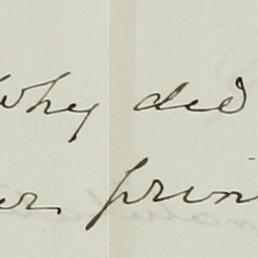 Why did
er prin